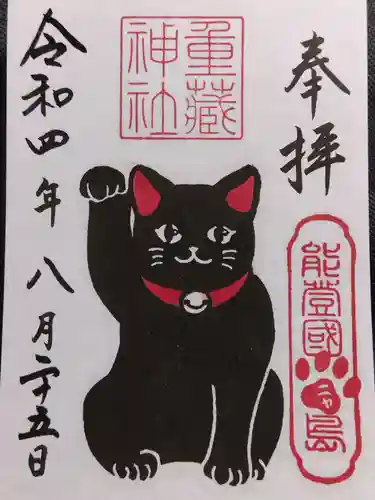 奉拝
重藏
神社
能登國
島
令和四年八月二十五日